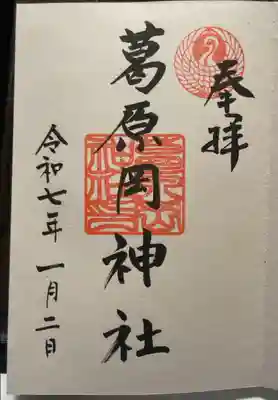 奉拝
葛原岡神社
令和七年 一月二日